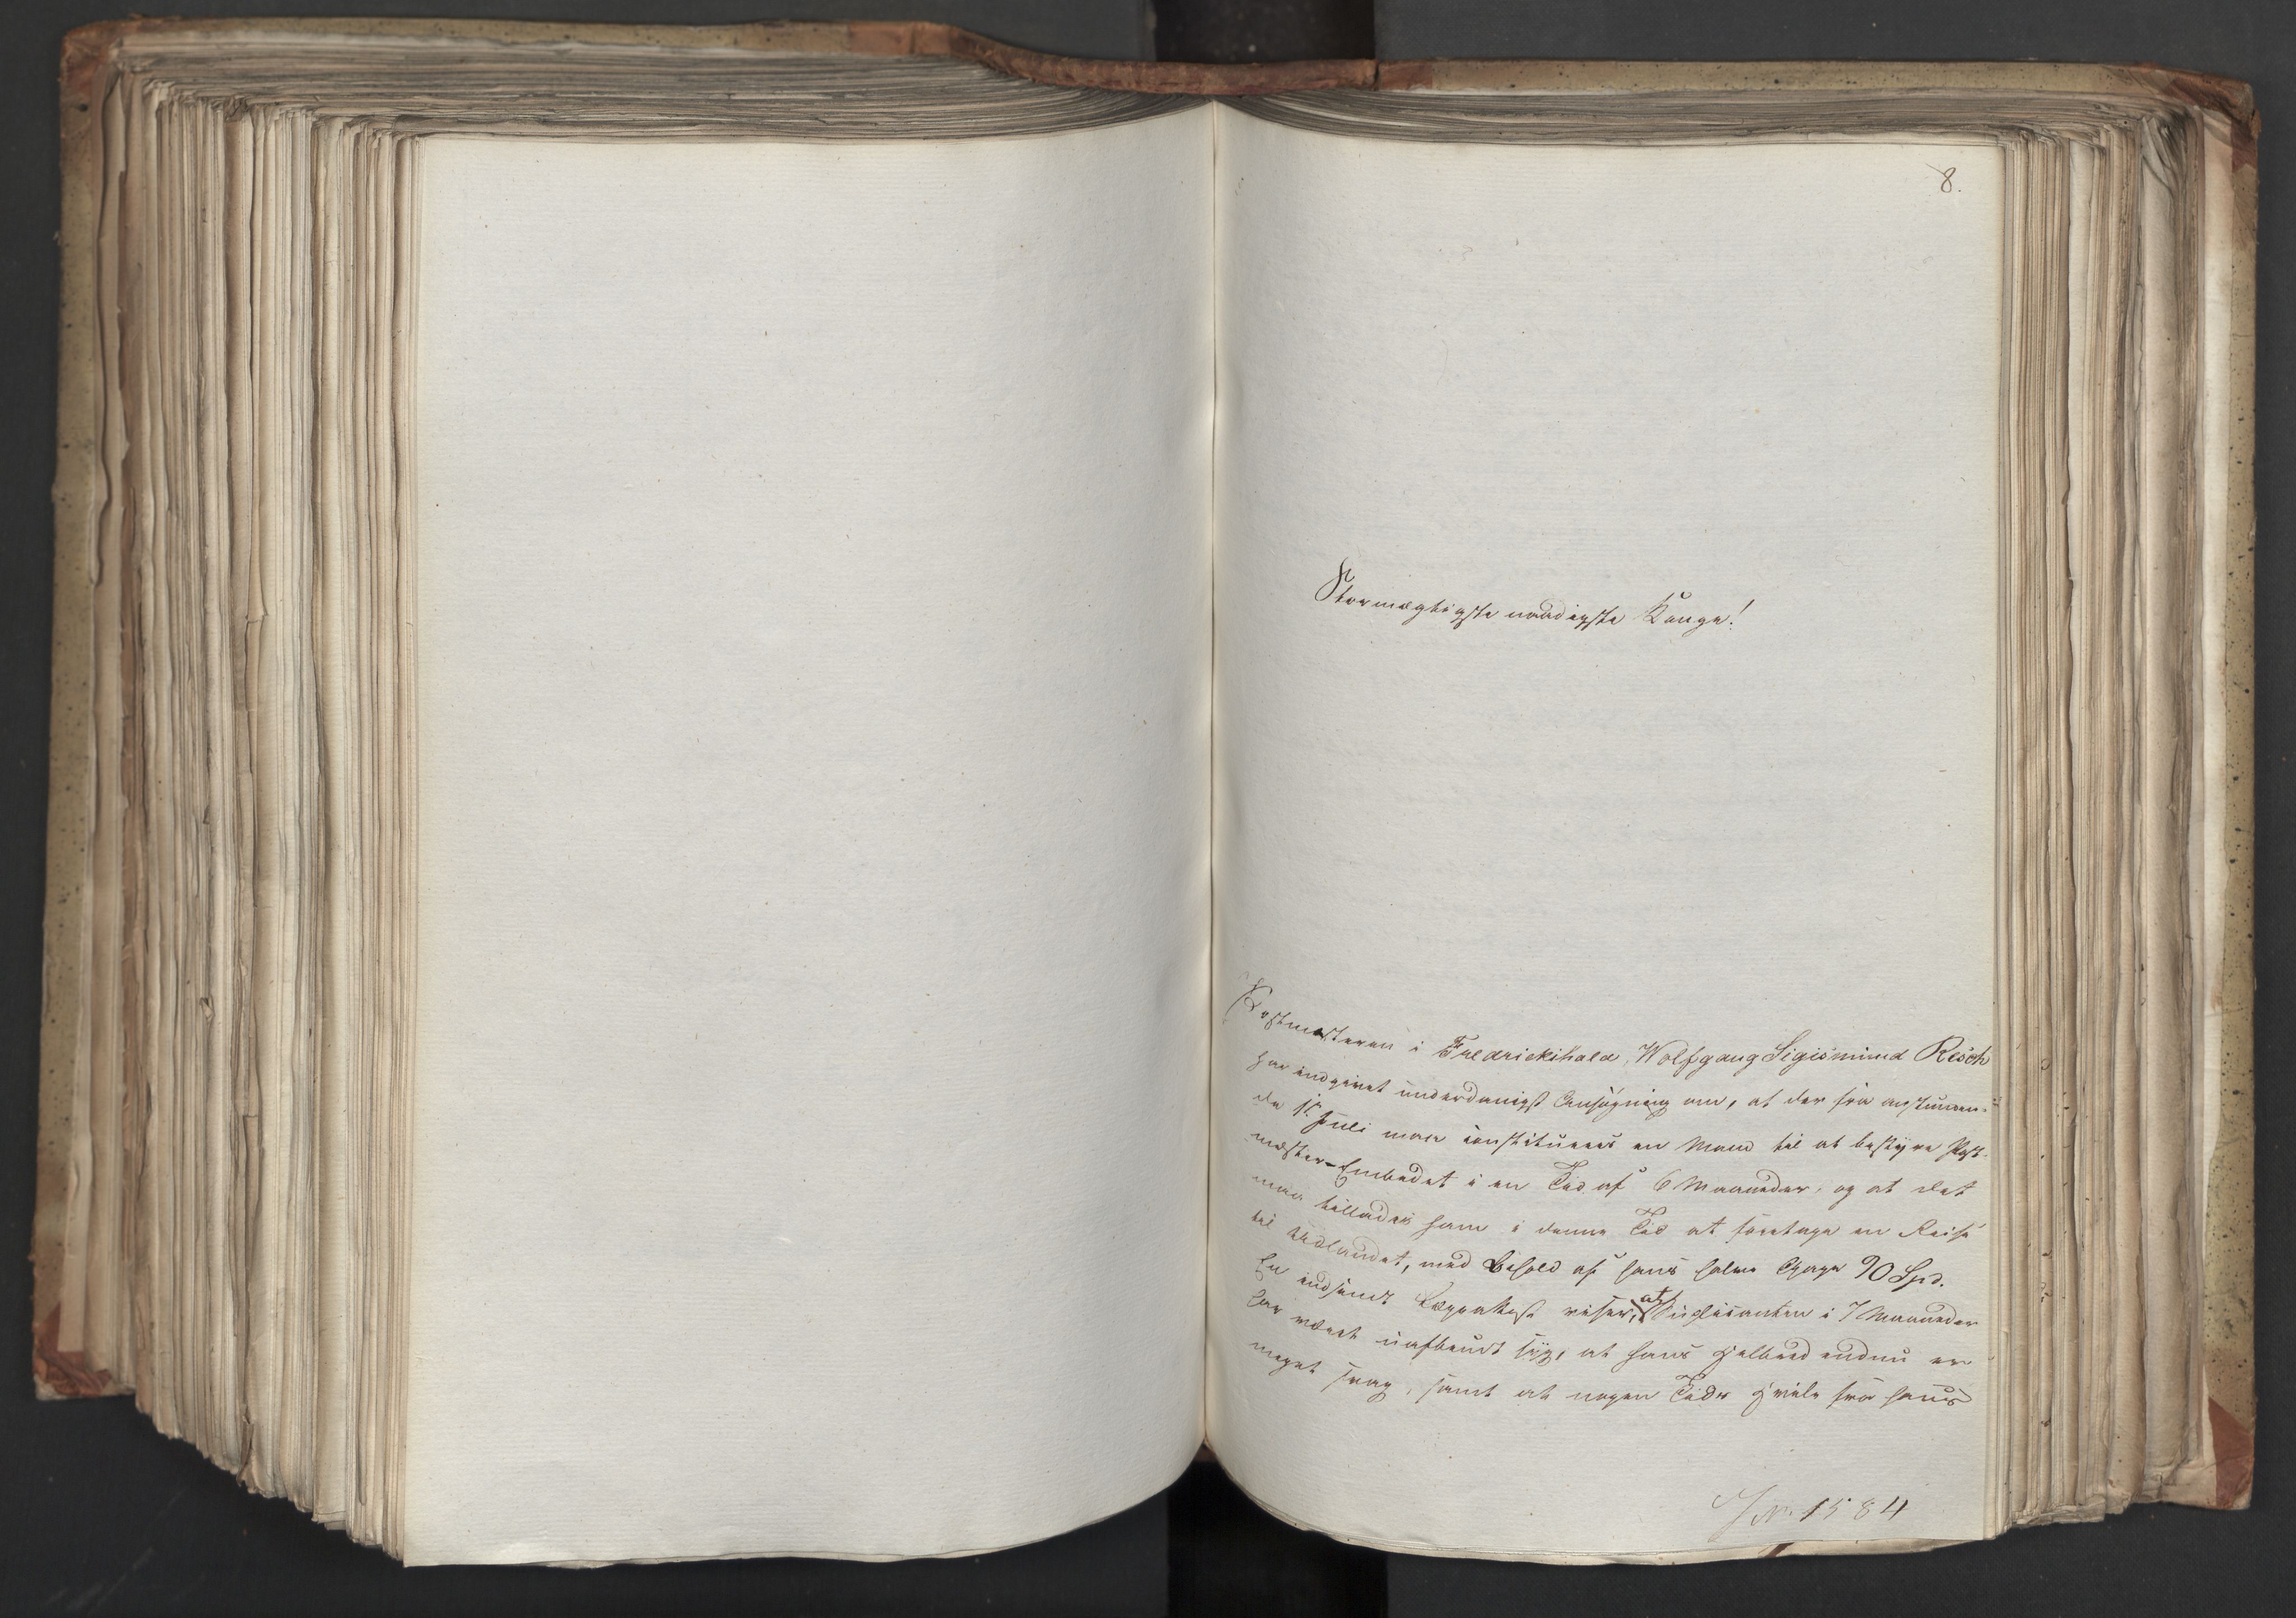 8.
Stormægtigste naadigste Konge!
Postmesteren i Fredrickshald, Wolfgang Sigismund Resch
har indgivet underdanigst Ansøgning om, at der fra anstunden-
de 1st Juli maa constitueres en Mand til at bestyre Post-
mester-Embedet i en Tid af 6 Maaneder, og at det
maa tillades ham i denne Tid at foretage en Reise
til Udlandet, med Behold af hans halve Gage 90 Spd.
En indsendt Lægeattest viser, at Suplicanten i 7 Maaneder
har været uafbrudt syg, at hans Helbred endnu er
meget svag, samt at nogen Tids Hvile fra hans
J N. 1584